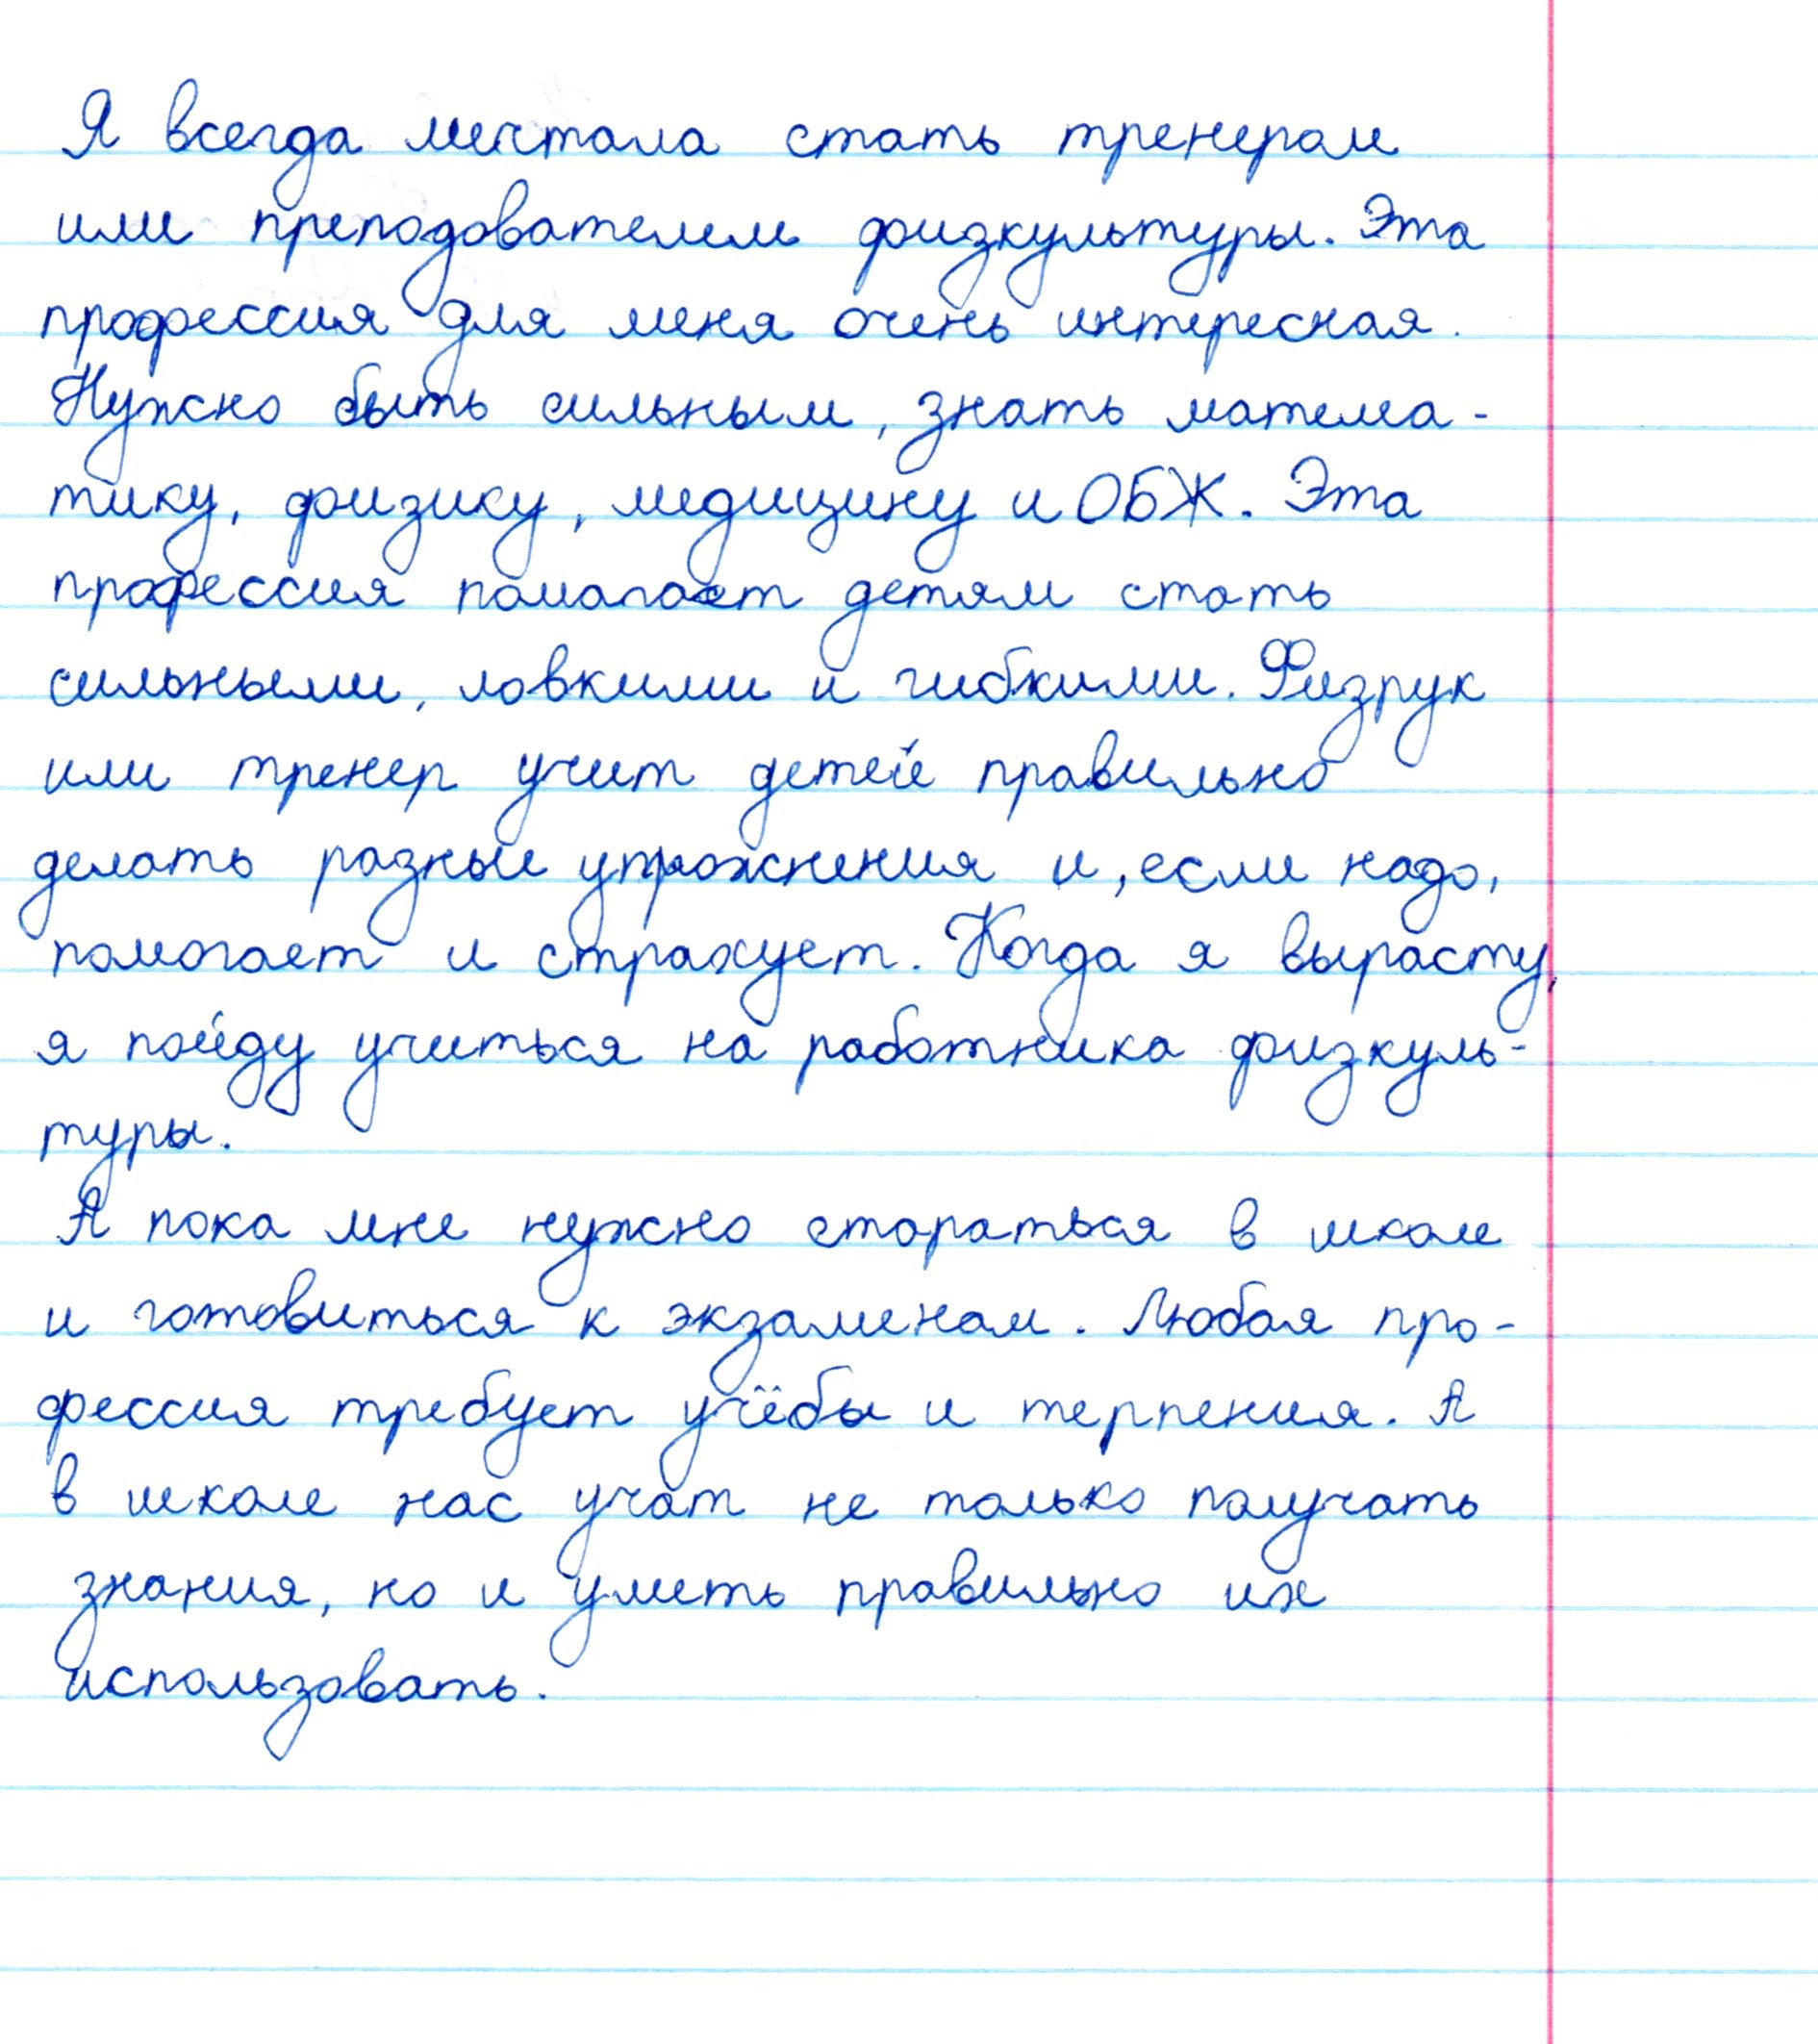 Я всегда мечтала стать тренером
или преподователем физкультуры. Эта
профессия для меня очень интересная.
Нужно быть сильным, знать матема-
тику, физику, медицину и ОБЖ. Эта
профессия помагает детям стать
сильными, ловкими и гибкими. Физрук
или тренер учит детей правильно
делать разные упражнения и, если надо,
помогает и страхует. Когда я вырасту,
я пойду учиться на работника физкуль-
туры.
А пока мне нужно стораться в школе
и готовиться к экзаменам. Любая про-
фессия требует учёбы и терпения. А
в школе нас учат не только получать
знания, но и уметь правильно их
использовать.